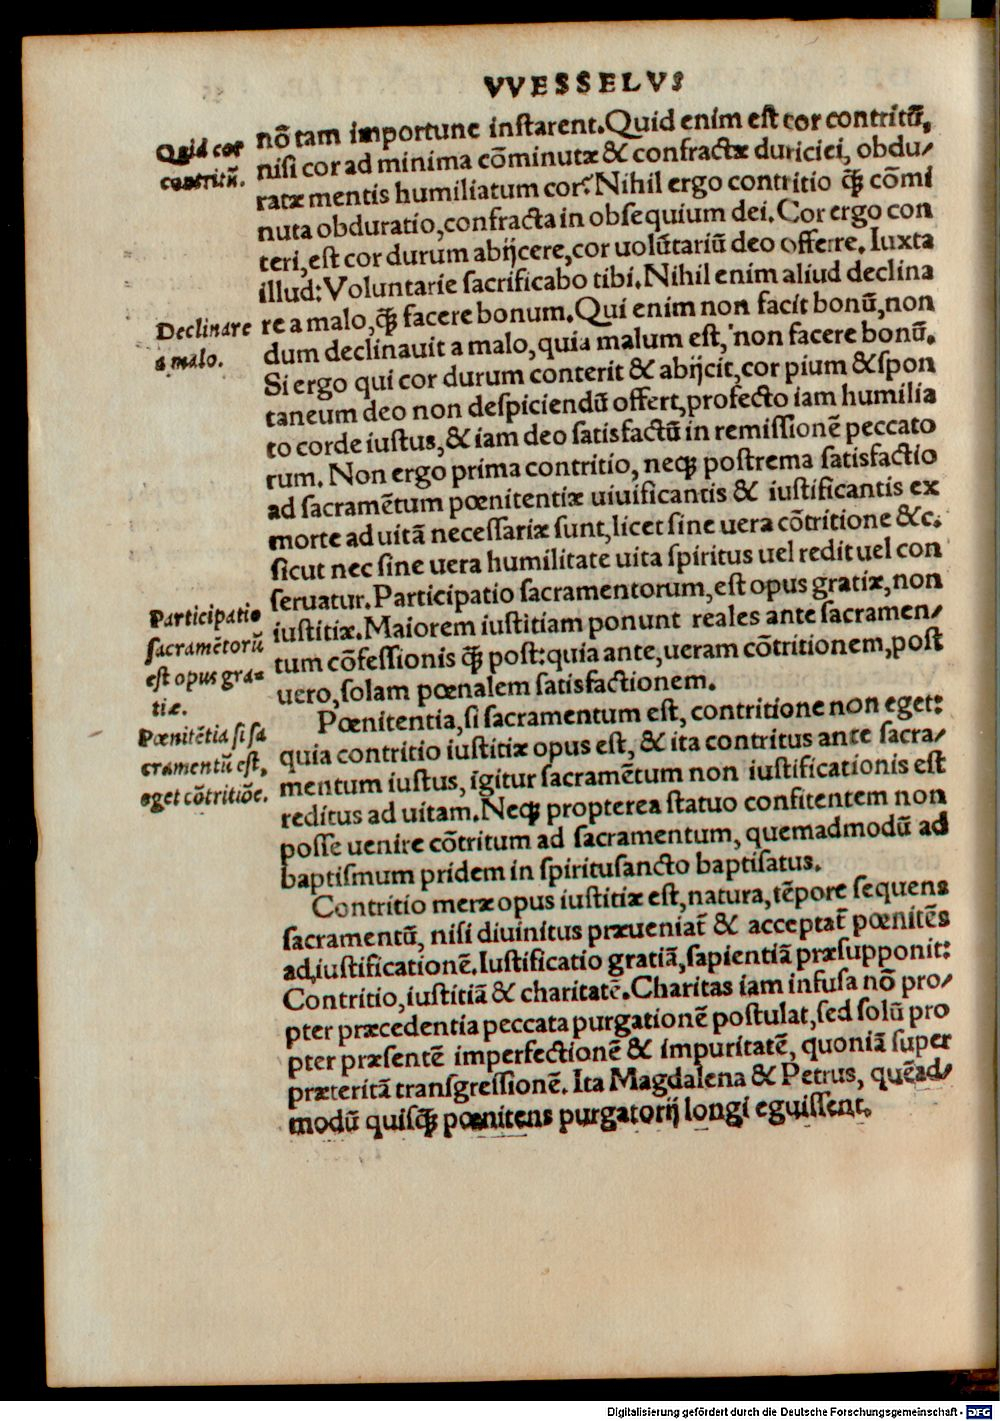 VVESSELVS
Quid cor
contritũ.
nõ tam importune instarent. Quid enim est cor contritũ,
nisi cor ad minima cõminutæ & confractæ duriciei, obdu/
ratæ mentis humiliatum cor? Nihil ergo contritio ꝗ̃ cõmi
nuta obduratio, confracta in obsequium dei. Cor ergo con
teri, est cor durum abijcere, cor uolũtariũ deo offerre. Iuxta
illud: Voluntarie sacrificabo tibi. Nihil enim aliud declina
Declinare
a malo.
re a malo, ꝗ̃ facere bonum. Qui enim non facit bonũ, non
dum declinauit a malo, quia malum est, non facere bonũ.
Si ergo qui cor durum conterit & abijcit, cor pium & spon
taneum deo non despiciendũ offert, profecto iam humilia
to corde iustus, & iam deo satisfactũ in remissionẽ peccato
rum. Non ergo prima contritio, neqꝫ postrema satisfactio
ad sacramẽtum pœnitentiæ uiuificantis & iustificantis ex
morte ad uitã necessariæ sunt, licet sine uera cõtritione &c.
sicut nec sine uera humilitate uita spiritus uel redit uel con
seruatur. Participatio sacramentorum, est opus gratiæ, non
Participatio
sacramẽtorũ
est opus gra-
tiæ.
iustitiæ. Maiorem iustitiam ponunt reales ante sacramen/
tum cõfessionis ꝗ̃ post: quia ante, ueram cõtritionem, post
uero, solam pœnalem satisfactionem.
Pœnitẽtia si sa
cramentũ est,
eget cõtritiõe.
Pœnitentia, si sacramentum est, contritione non eget:
quia contritio iustitiæ opus est, & ita contritus ante sacra/
mentum iustus, igitur sacramẽtum non iustificationis est
reditus ad uitam. Neqꝫ propterea statuo confitentem non
posse uenire cõtritum ad sacramentum, quemadmodũ ad
baptismum pridem in spiritusancto baptisatus.
Contritio meræ opus iustitiæ est, natura, tẽpore sequens
sacramentũ, nisi diuinitus præueniat̃ & acceptat̃ pœnitẽs
ad iustificationẽ. Iustificatio gratiã, sapientiã præsupponit:
Contritio, iustitiã & charitatẽ. Charitas iam infusa nõ pro/
pter præcedentia peccata purgationẽ postulat, sed solũ pro
pter præsentẽ imperfectionẽ & impuritatẽ, quoniã super
præteritã transgressionẽ. Ita Magdalena & Petrus, quẽad/
modũ quisꝗ̃ pœnitens purgatorij longi eguissent.
Digitalisierung gefördert durch die Deutsche Forschungsgemeinschaft - DFG